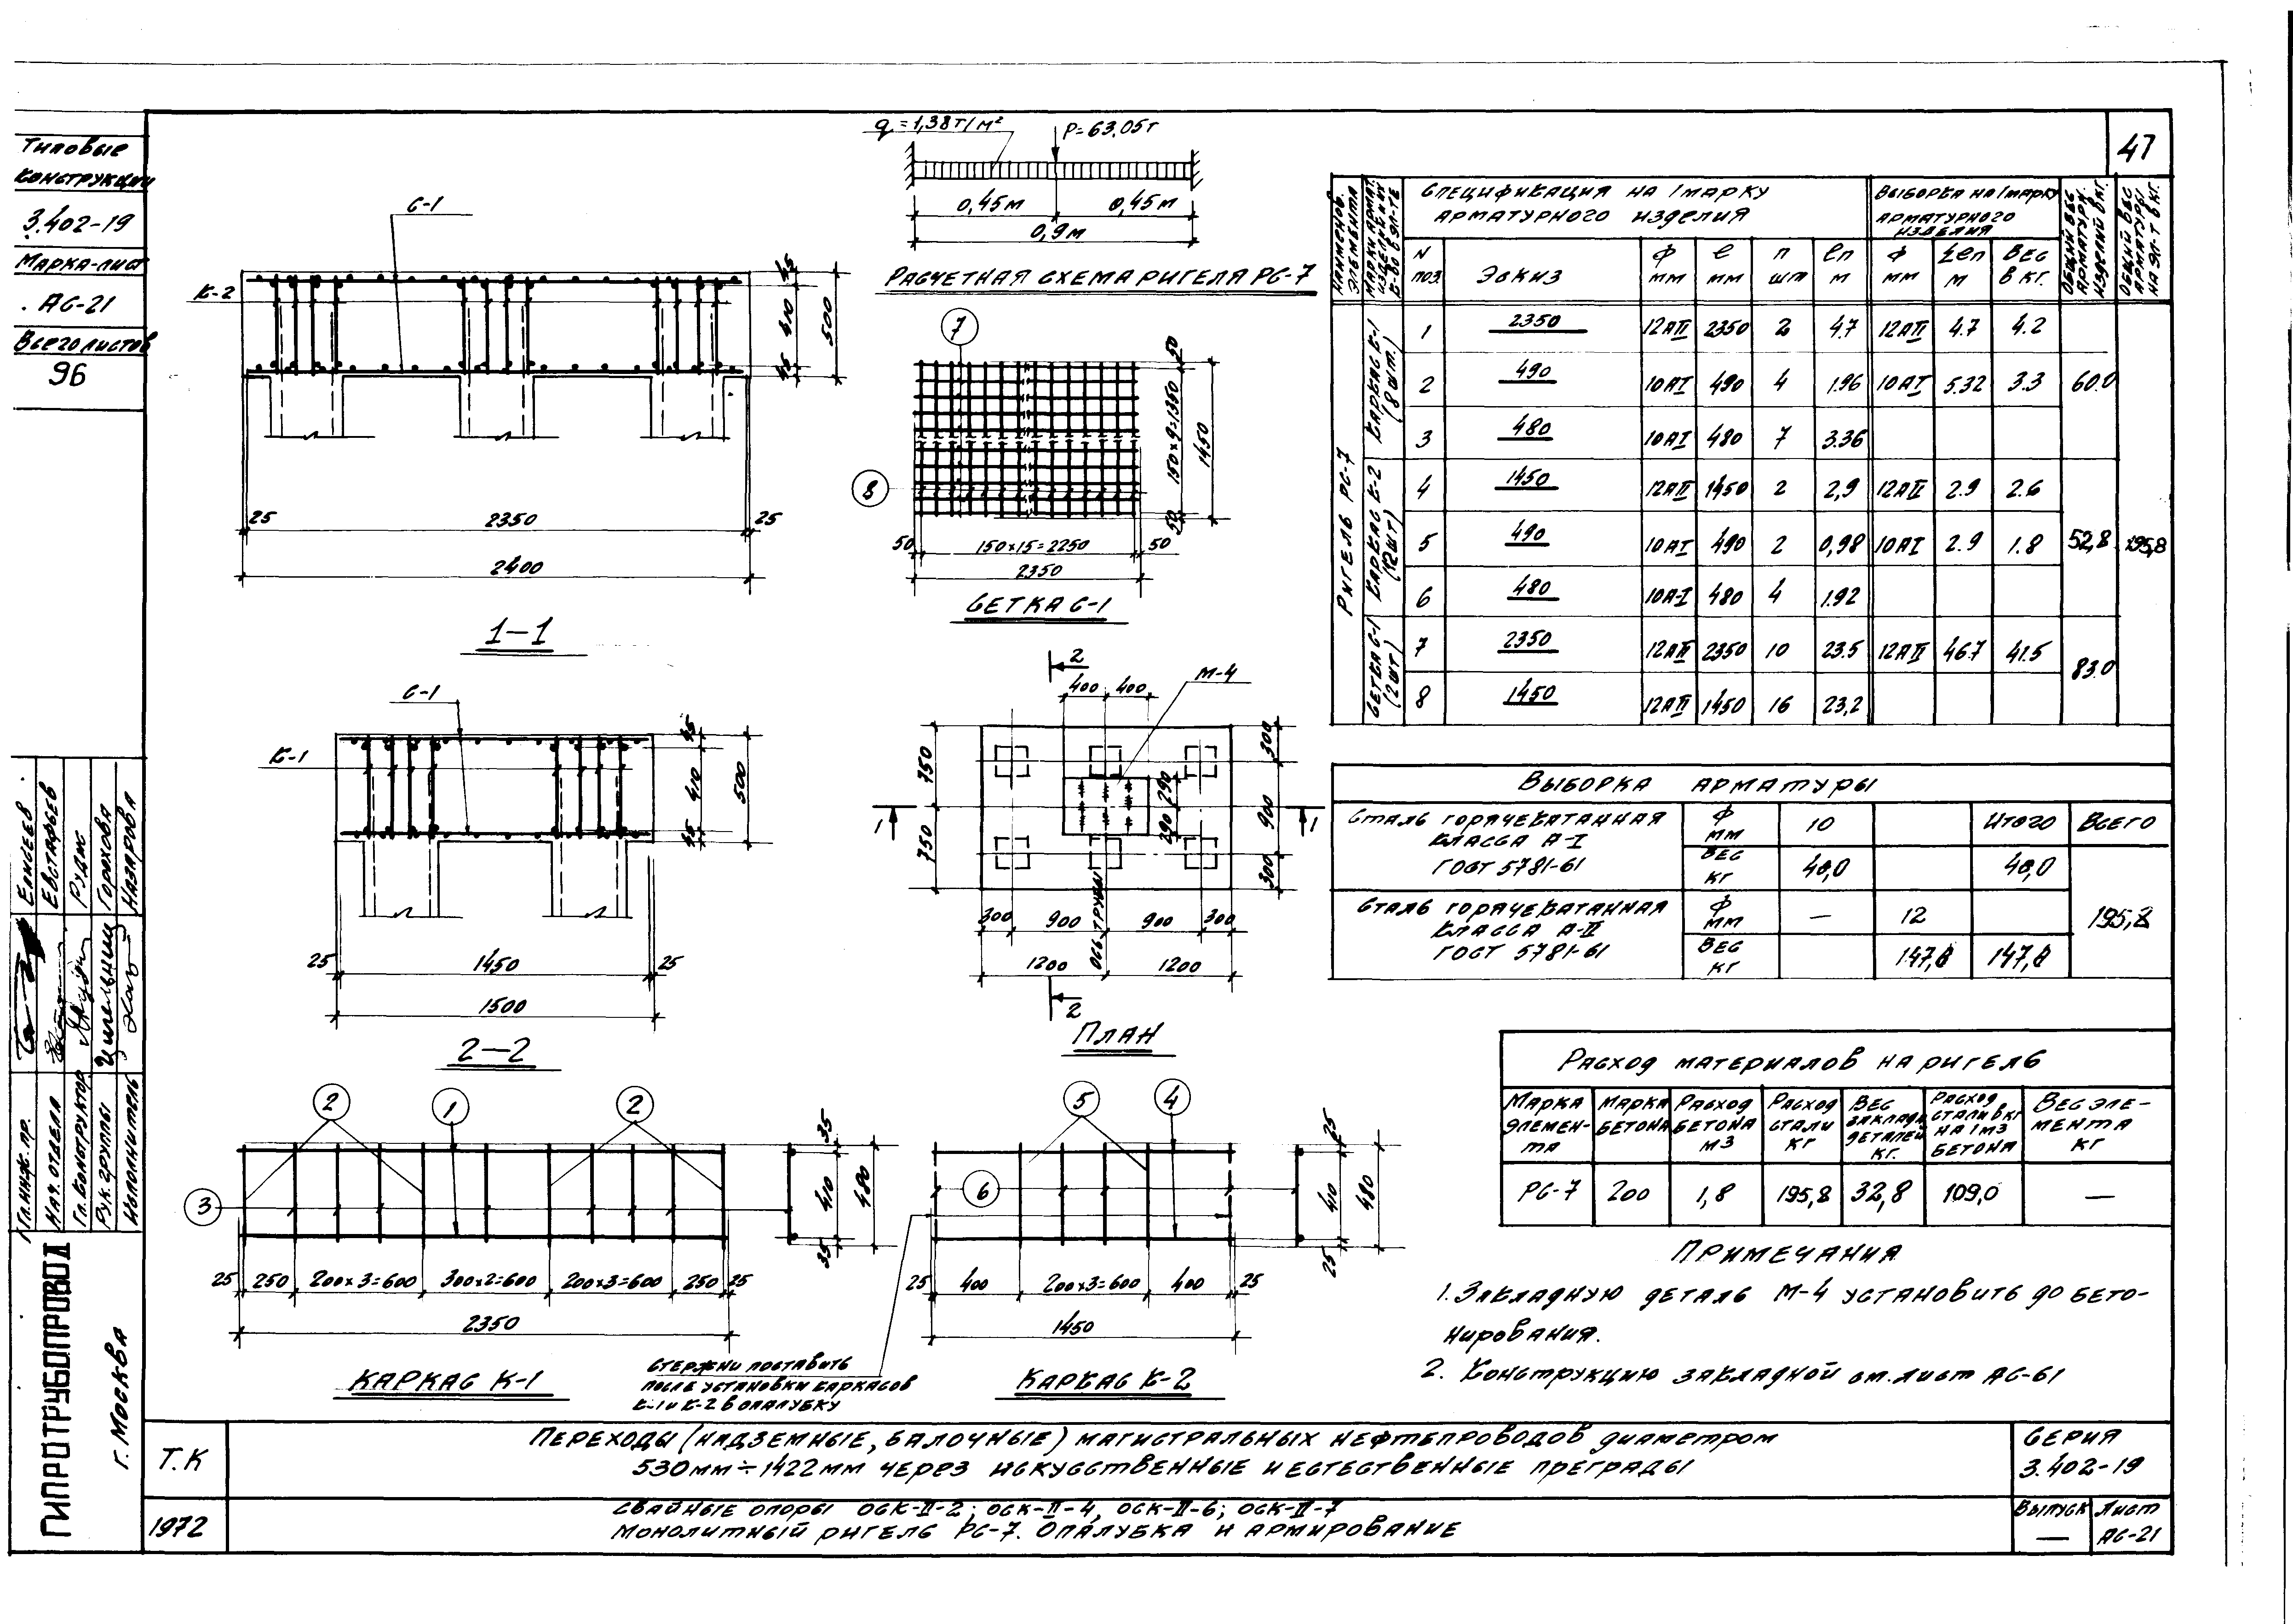 47
Типовые
конструкции
3.402-19
Марка-лист
АС-21
Всего листов
96
q=1,38т/м²
P=63.05т
0,45м
0,45м
0,9м
Расчетная схема ригеля РС-7
С-1
К-2
45
410
45
500
25
2350
25
2400
1-1
7
8
50
150х9=1350
50
1450
50
150х15=2250
50
2350
Сетка С-1
С-1
К-1
45
410
45
500
25
1450
25
1500
2-2
2
М-4
400
400
750
750
290
290
300
900
300
1
1
300
900
900
300
Ось трубы
1200
1200
2
План
Наименов. элемента
Марки армат. изделий и их к-во в эл-те
Спецификация на 1 марку
арматурного изделия
Выборка на 1 марку
арматурного
изделия
Общий вес арматурн. изделий в кг.
Общий вес арматуры на эл-т в кг.
N поз.
Эскиз
Ф мм
ℓ мм
n шт
ℓn м
Ф мм
Σℓn м
Вес в кг.
Ригель РС-7
Каркас К-1 (8 шт.)
1 2350 12АII 2350 2 4.7 12АII 4.7 4.2
2 490 10АI 490 4 1.96 10АI 5.32 3.3 60.0
3 480 10АI 480 7 3.36
Каркас К-2 (12шт)
4 1450 12АII 1450 2 2,9 12АII 2.9 2.6
5 490 10АI 490 2 0,98 10АI 2.9 1.8 52,8 195,8
6 480 10А-I 480 4 1.92
Сетка С-1 (2шт)
7 2350 12АII 2350 10 23.5 12АII 46.7 41.5 83.0
8 1450 12АII 1450 16 23,2
Выборка арматуры
Сталь горячекатанная
класса А-I
ГОСТ 5781-61
Ф мм 10 Итого Всего
Вес кг 48,0 48,0
Сталь горячекатанная
класса А-II
ГОСТ 5781-61
Ф мм — 12 195,8
Вес кг 147,8 147,8
Расход материалов на ригель
Марка элемен-та
Марка бетона
Расход бетона м3
Расход стали кг
Вес закладн. деталей кг.
Расход стали в кг на 1м3 бетона
Вес эле-мента кг
РС-7 200 1,8 195,8 32,8 109,0 —
Примечания
1. Закладную деталь М-4 установить до бето-
нирования.
2. Конструкцию закладной см. лист АС-61
2
1
2
3
35
410
35
480
25
250
200х3=600
300х2=600
200х3=600
250
25
2350
Каркас К-1
5
4
6
25
410
25
480
25
400
200х3=600
400
25
1450
Каркас К-2
Стержни поставить
после установки каркасов
К-1 и К-2 в опалубку
Гл.инж.пр.
Елисеев
Нач.отдела
Евстафьев
Гл.конструктор
Рудис
Рук.группы
Горохова
Исполнитель
Назарова
ГИПРОТРУБОПРОВОД
г. Москва
Т.К
1972
Переходы (надземные, балочные) магистральных нефтепроводов диаметром
530мм÷1422мм через искусственные и естественные преграды
Свайные опоры ОСК-II-2; ОСК-II-4, ОСК-II-6; ОСК-II-7
Монолитный ригель РС-7. Опалубка и армирование
Серия
3.402-19
Выпуск
—
Лист
АС-21